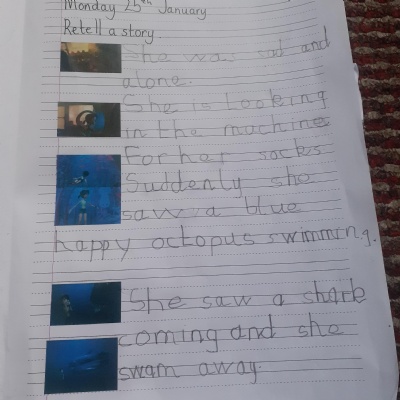 Monday 25th January
Retell a story.
She was sad and
alone.
She is Looking
in the machine
For her socks
Suddenly she
saw a blue
happy octopus swimming.
She saw a shark
coming and she
swam away.